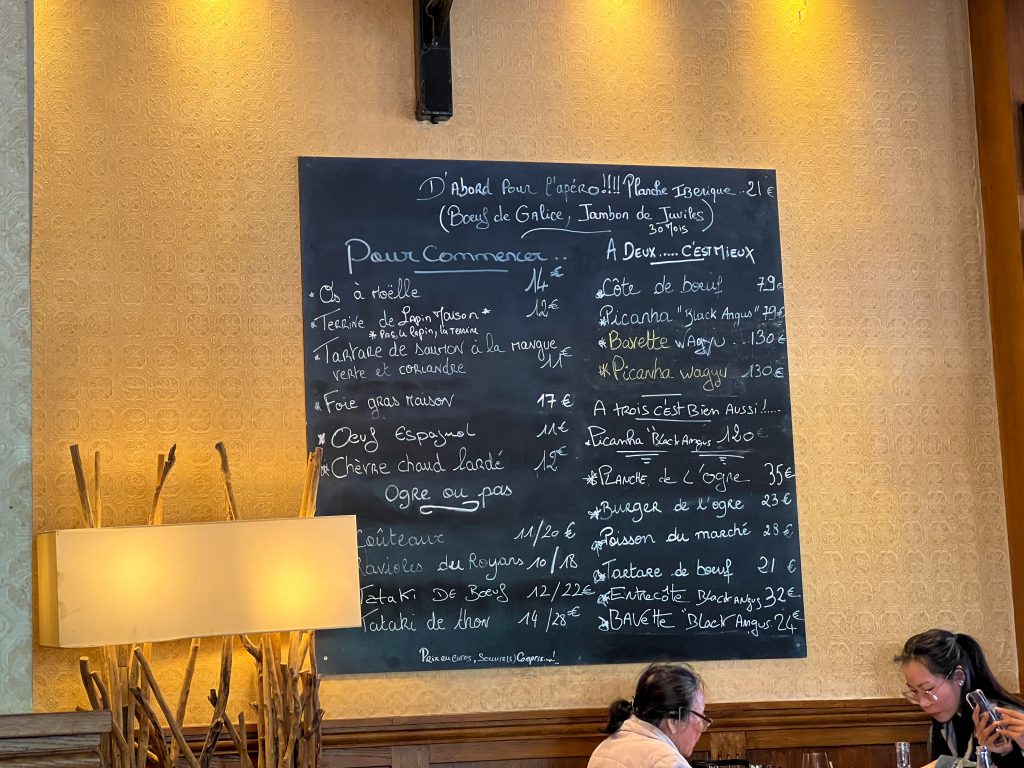 D'Abord Pour l'apéro!!!! Planche Iberique..21€
(Boeuf de Galice, Jambon de Juviles)
30 Mois
Pour Commencer..
* Os à Moëlle 14€
* Terrine de Lapin Maison* 12€
* Pas le lapin, la terrine
* Tartare de saumon à la mangue
verte et coriandre 11€
* Foie gras maison 17€
* Oeuf Espagnol 11€
* Chèvre chaud lardé 12€
Ogre ou pas
Coûteaux 11/20€
Ravioles du Royans 10/18
Tataki De Boeuf 12/22€
Tataki de thon 14/28€
A Deux..... c'est Mieux
* Côte de boeuf 79€
Picanha "Black Angus" 79€
* Bavette wagyu .. 130€
* Picanha wagyu 130€
A trois c'est Bien Aussi!....
Picanha "Black Angus 120€
* Planche de L'ogre 35€
* Burger de l'ogre 23€
Poisson du marché 28€
* Tartare de boeuf 21€
* Entrecôte Black Angus 32€
* Bavette "Black Angus. 24€
Prix en euros, Service(s) Compris..!